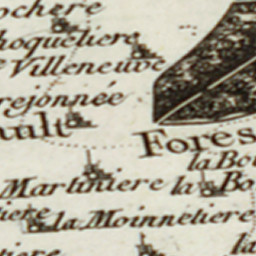 ochere
hoqueliere
Villeneuve
rejonnée
ault
Fores
la Bo
Martiniere la Bo
iere la Moinnetiere
tiere la